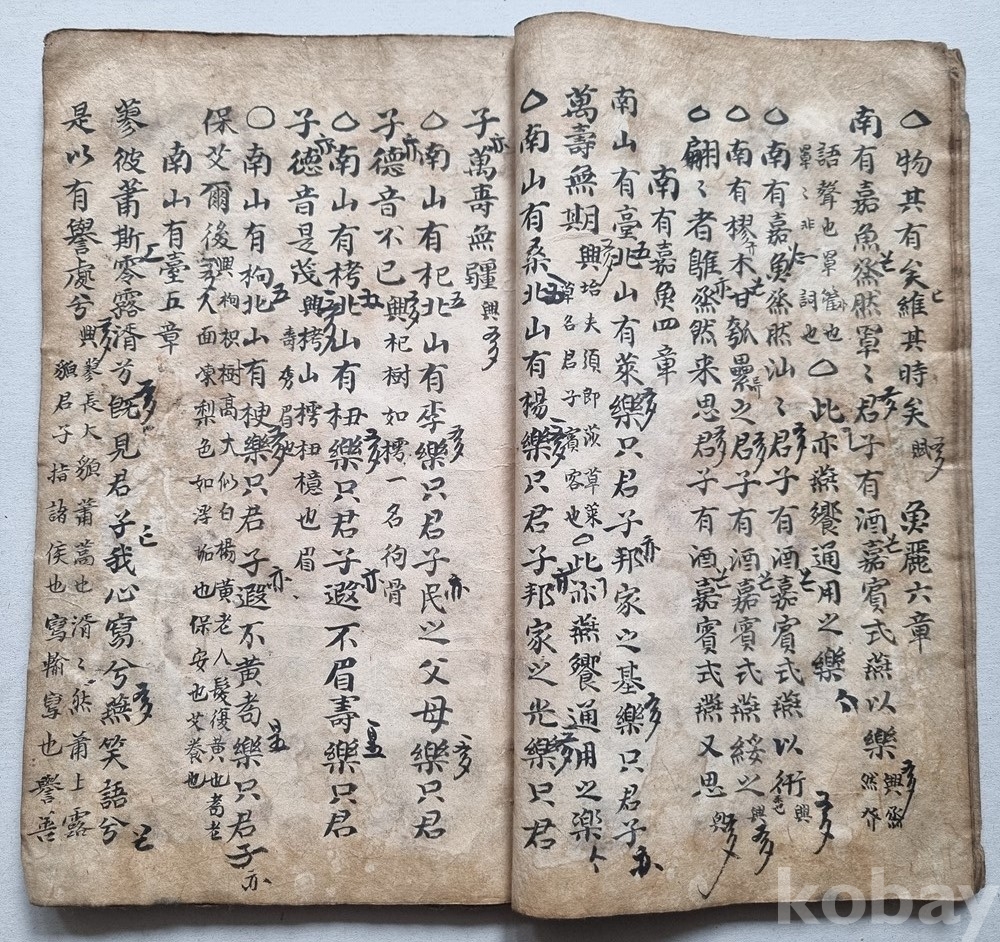 ○物其有矣維其時矣 賦 魚麗六章
南有嘉魚烝然罩〻君子有酒嘉賓式燕以樂 興烝然作
語聲也罩篧也罩〻非一詞也○此亦燕饗通用之樂
○南有嘉魚烝然汕〻君子有酒嘉賓式燕以衎 興
○南有樛木甘瓠纍之君子有酒嘉賓式燕綏之 興
○翩〻者鵻烝然来思君子有酒嘉賓式燕又思 興
南有嘉魚四章
南山有臺北山有萊樂只君子邦家之基樂只君子
萬壽無期 興坮夫須即莎草萊草名君子賓客也○此亦燕饗通用之樂
○南山有桑北山有楊樂只君子邦家之光樂只君
子萬壽無疆 興
○南山有杞北山有李樂只君子民之父母樂只君
子德音不已 興杞樹如樗一名狗骨
○南山有栲北山有杻樂只君子遐不眉壽樂只君
子德音是茂 興栲山樗杻檍也眉壽秀眉也
○南山有枸北山有楰樂只君子遐不黄耇樂只君子
保艾爾後 興枸枳樹高大似白楊黄老人髮復黄也耇老人面凍梨色如浮垢也保安也艾養也
南山有臺五章
蓼彼蕭斯零露湑兮旣見君子我心寫兮燕笑語兮
是以有譽處兮 興蓼長大貌蕭蒿也湑〻然蕭上露貌君子指諸侯也寫輸寫也譽善
kobay